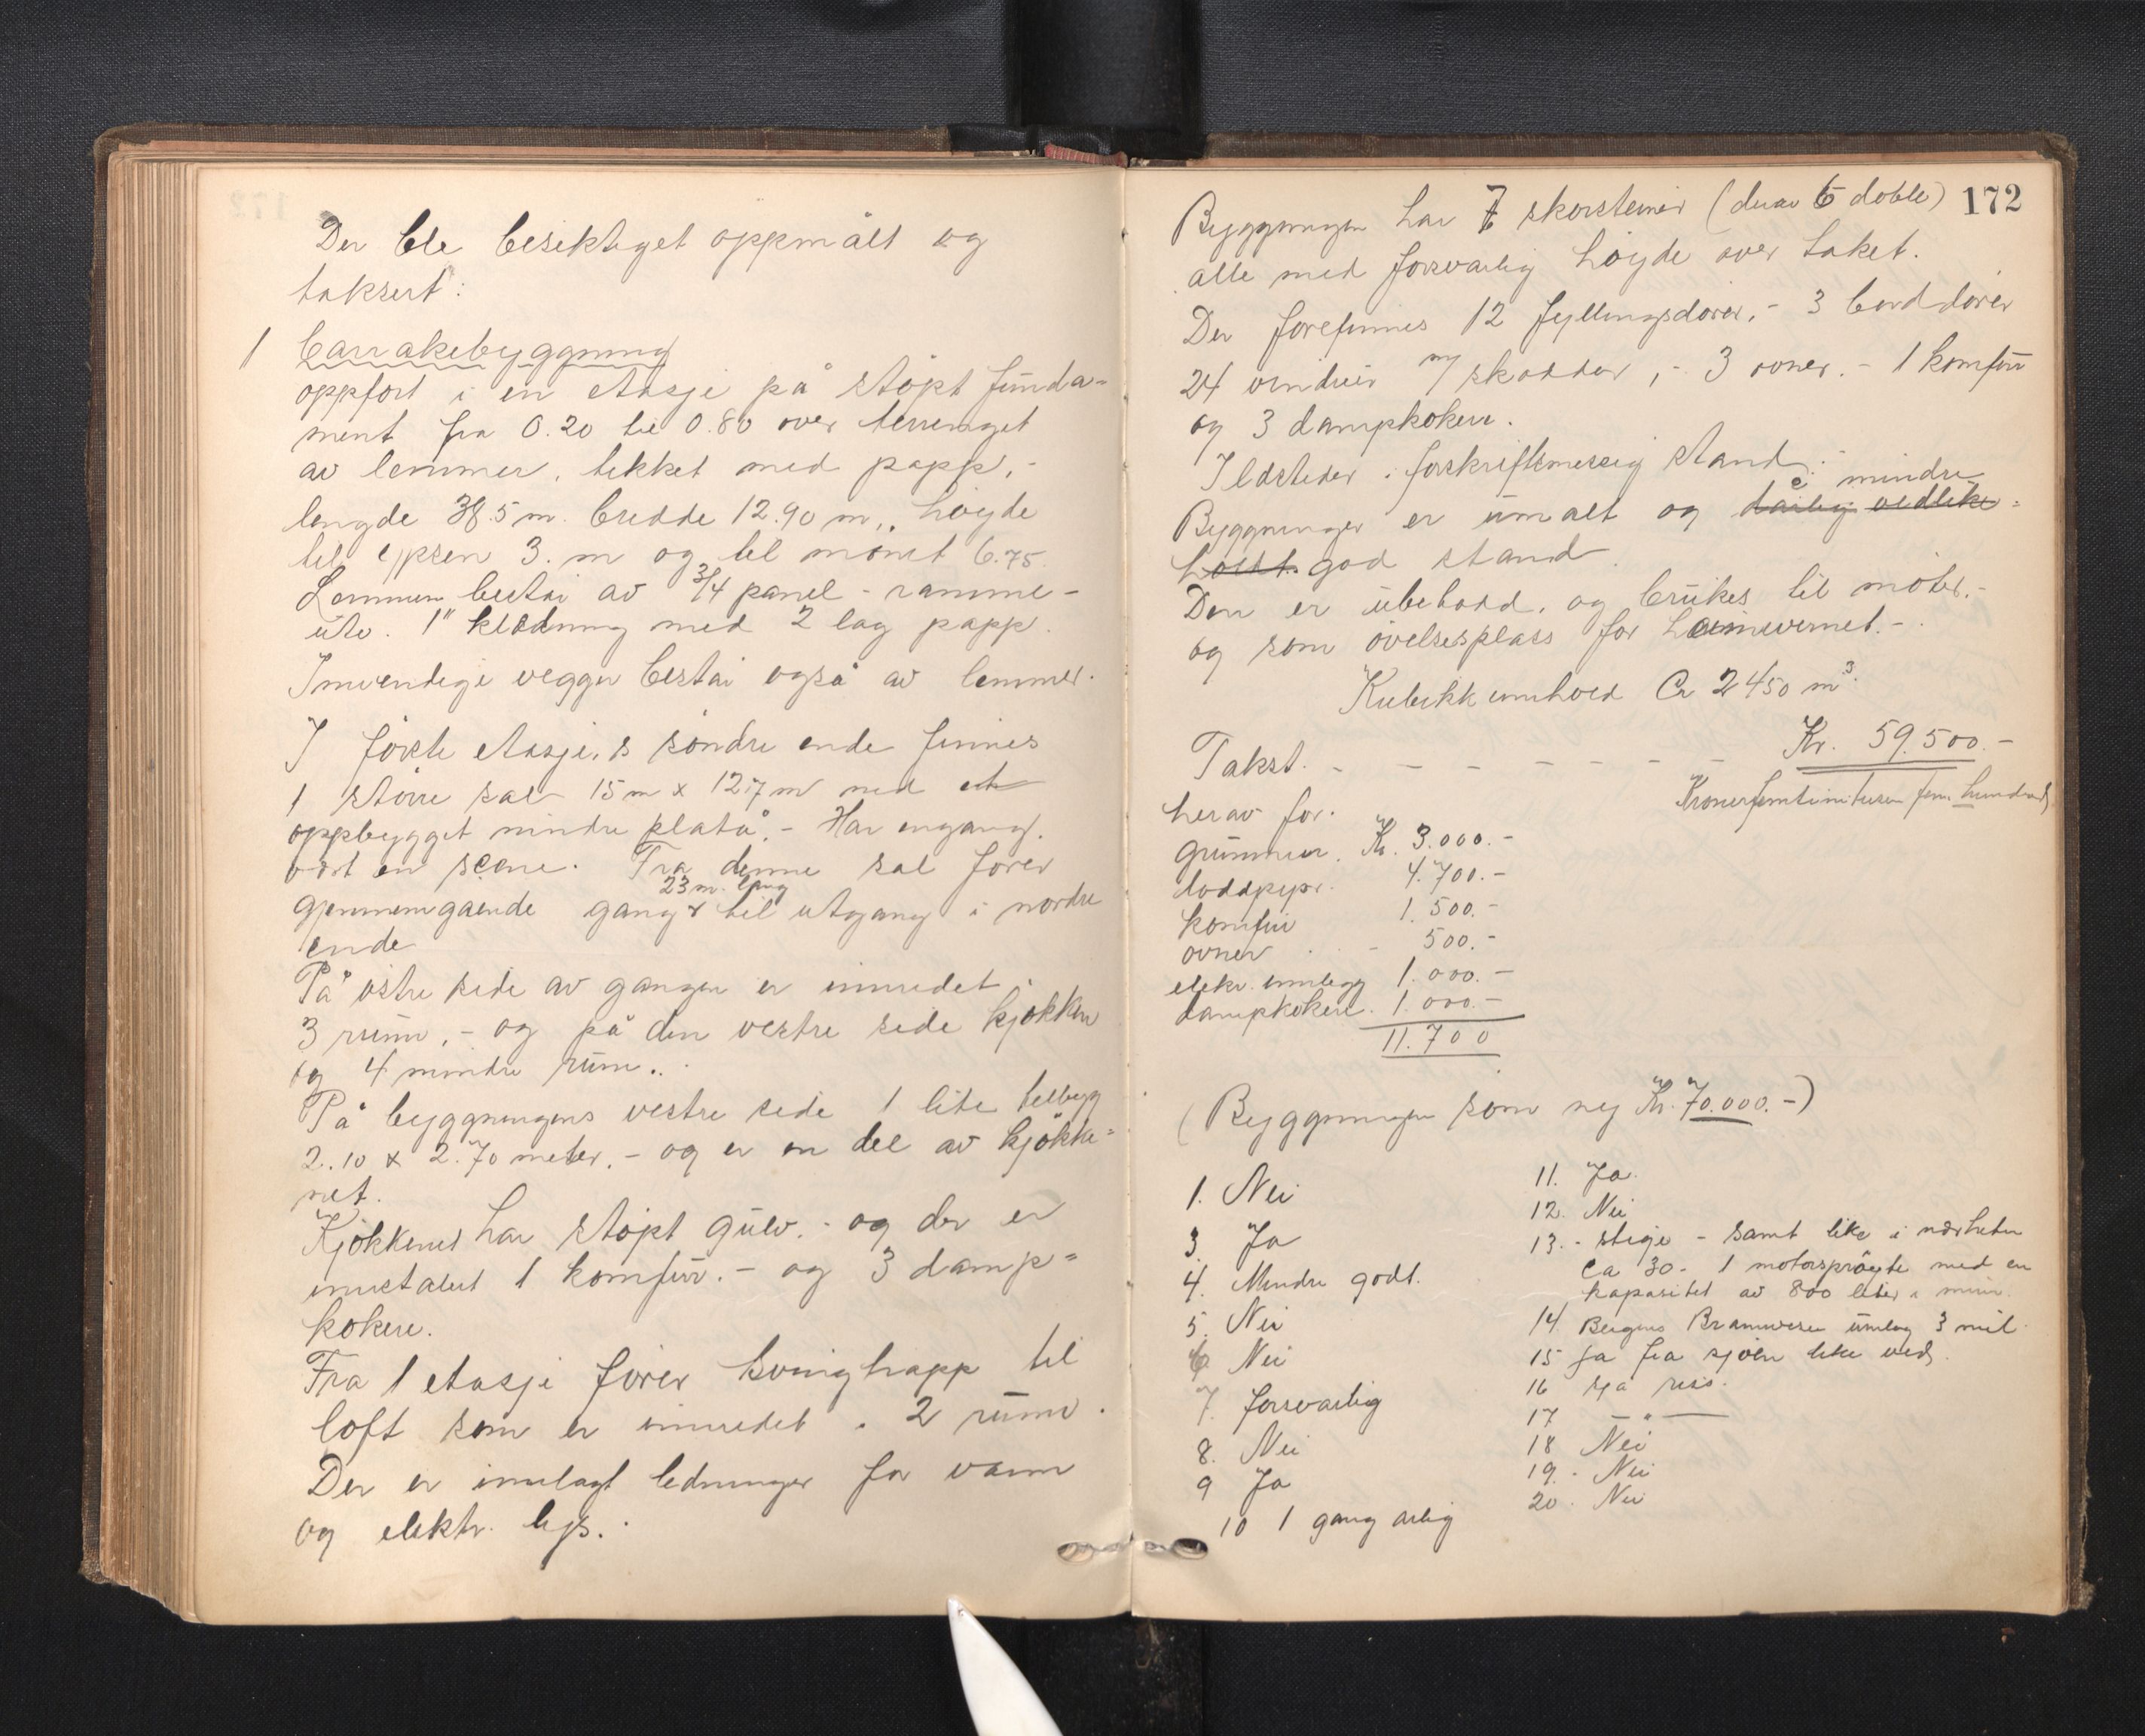 Der ble besiktiget oppmålt og
taksert:
1 barrakebyggning
oppført i en etasje på støpt funda-
ment fra 0.20 til 0.80 over terrenget
av lemmer, tekket med papp,-
lengde 38.5 m. bredde 12.90 m., høyde
til gesen 3. m og til mønet 6.75
Lemmen består av 3/4 panel - ramme-
utv. 1" kledning med 2 lag papp.
Innvendige vegger består også av lemmer.
I første etasje, søndre ende finnes
1 større sal 15 m x 12.7 m med et
oppbygget mindre platå.- Har engang
vært en scene. Fra denne sal fører
23 m. lang
gjennemgaende gang til utgang i nordre
ende
På østre side av gangen er innredet
3 rum,- og på den vestre side kjøkken
og 4 mindre rum..
På byggningens vestre side 1 lite tilbygg
2.10 x 2.70 meter,- og er en del av kjøkke=
net.
Kjøkkenet har støpt gulv.- og der er
innstallert 1 komfur.- og 3 damp=
kokere.
Fra 1 etasje fører svingtrapp til
loft som er innredet i 2 rum.
Der er innlagt ledninger for vann
og elektr. lys.
172
Byggningen har 7 skorsteiner (derav 6 doble)
alle med forsvarlig høyde over taket.
Der forefinnes 12 fyllingsdører,- 3 borddører
24 vinduer m/ skodder,- 3 ovner.- 1 komfur
og 3 dampkokere.
Ildsteder i forskriftsmessig stand.
Byggninger er umalt og i dårlig vedlike= mindre
holdt. god stand.
Den er ubebodd, og brukes til møter,-
og som øvelsesplass for heimevernet.-
Kubikk innhold Ca 2450 m3.
Takst. - - - - - - - Kr. 59.500.-
Kroner femtinitusen fem hundred
herav for:
grunnmur. Kr. 3.000.-
loddpipr. 4.700.-
komfur 1.500.-
ovner . - 500.-
elekr. innlegg 1.000.-
dampkokere. 1.000.-
11.700
(Byggningen som ny Kr. 70.000.-)
1. Nei
3. Ja
4. Mindre godt.
5. Nei
6 Nei
7. forsvarlig
8. Nei
9 Ja
10 1 gang årlig
11. Ja.
12. Nei
13.- stige - samt like i nærheten
ca 30- 1 motorsprøyte med en
kapasitet av 800 liter i min.
14 Bergens Brannvesen umlag 3 mil
15 Ja fra sjøen like ved.
16 sjå riss.
17 — " —
18 Nei
19.- Nei
20. Nei